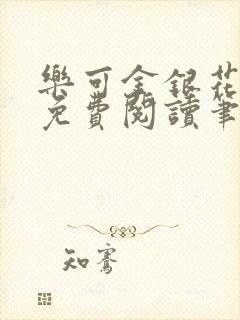 樂可金銀花
免費閱讀筆
知騫